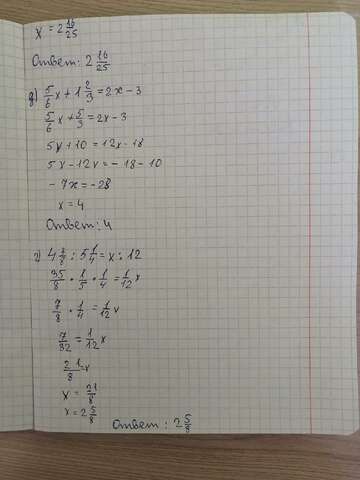 x = 2 16/25
Ответ: 2 16/25
g) 5/6 x + 1 2/3 = 2x - 3
5/6 x + 5/3 = 2x - 3
5x + 10 = 12x - 18
5x - 12x = - 18 - 10
- 7x = - 28
x = 4
Ответ: 4
г) 4 3/8 : 5 1/4 = x : 12
35/8 · 1/5 · 1/4 = 1/12 x
7/8 · 1/4 = 1/12 x
7/32 = 1/12 x
21/8 = x
x = 21/8
x = 2 5/8
Ответ: 2 5/8